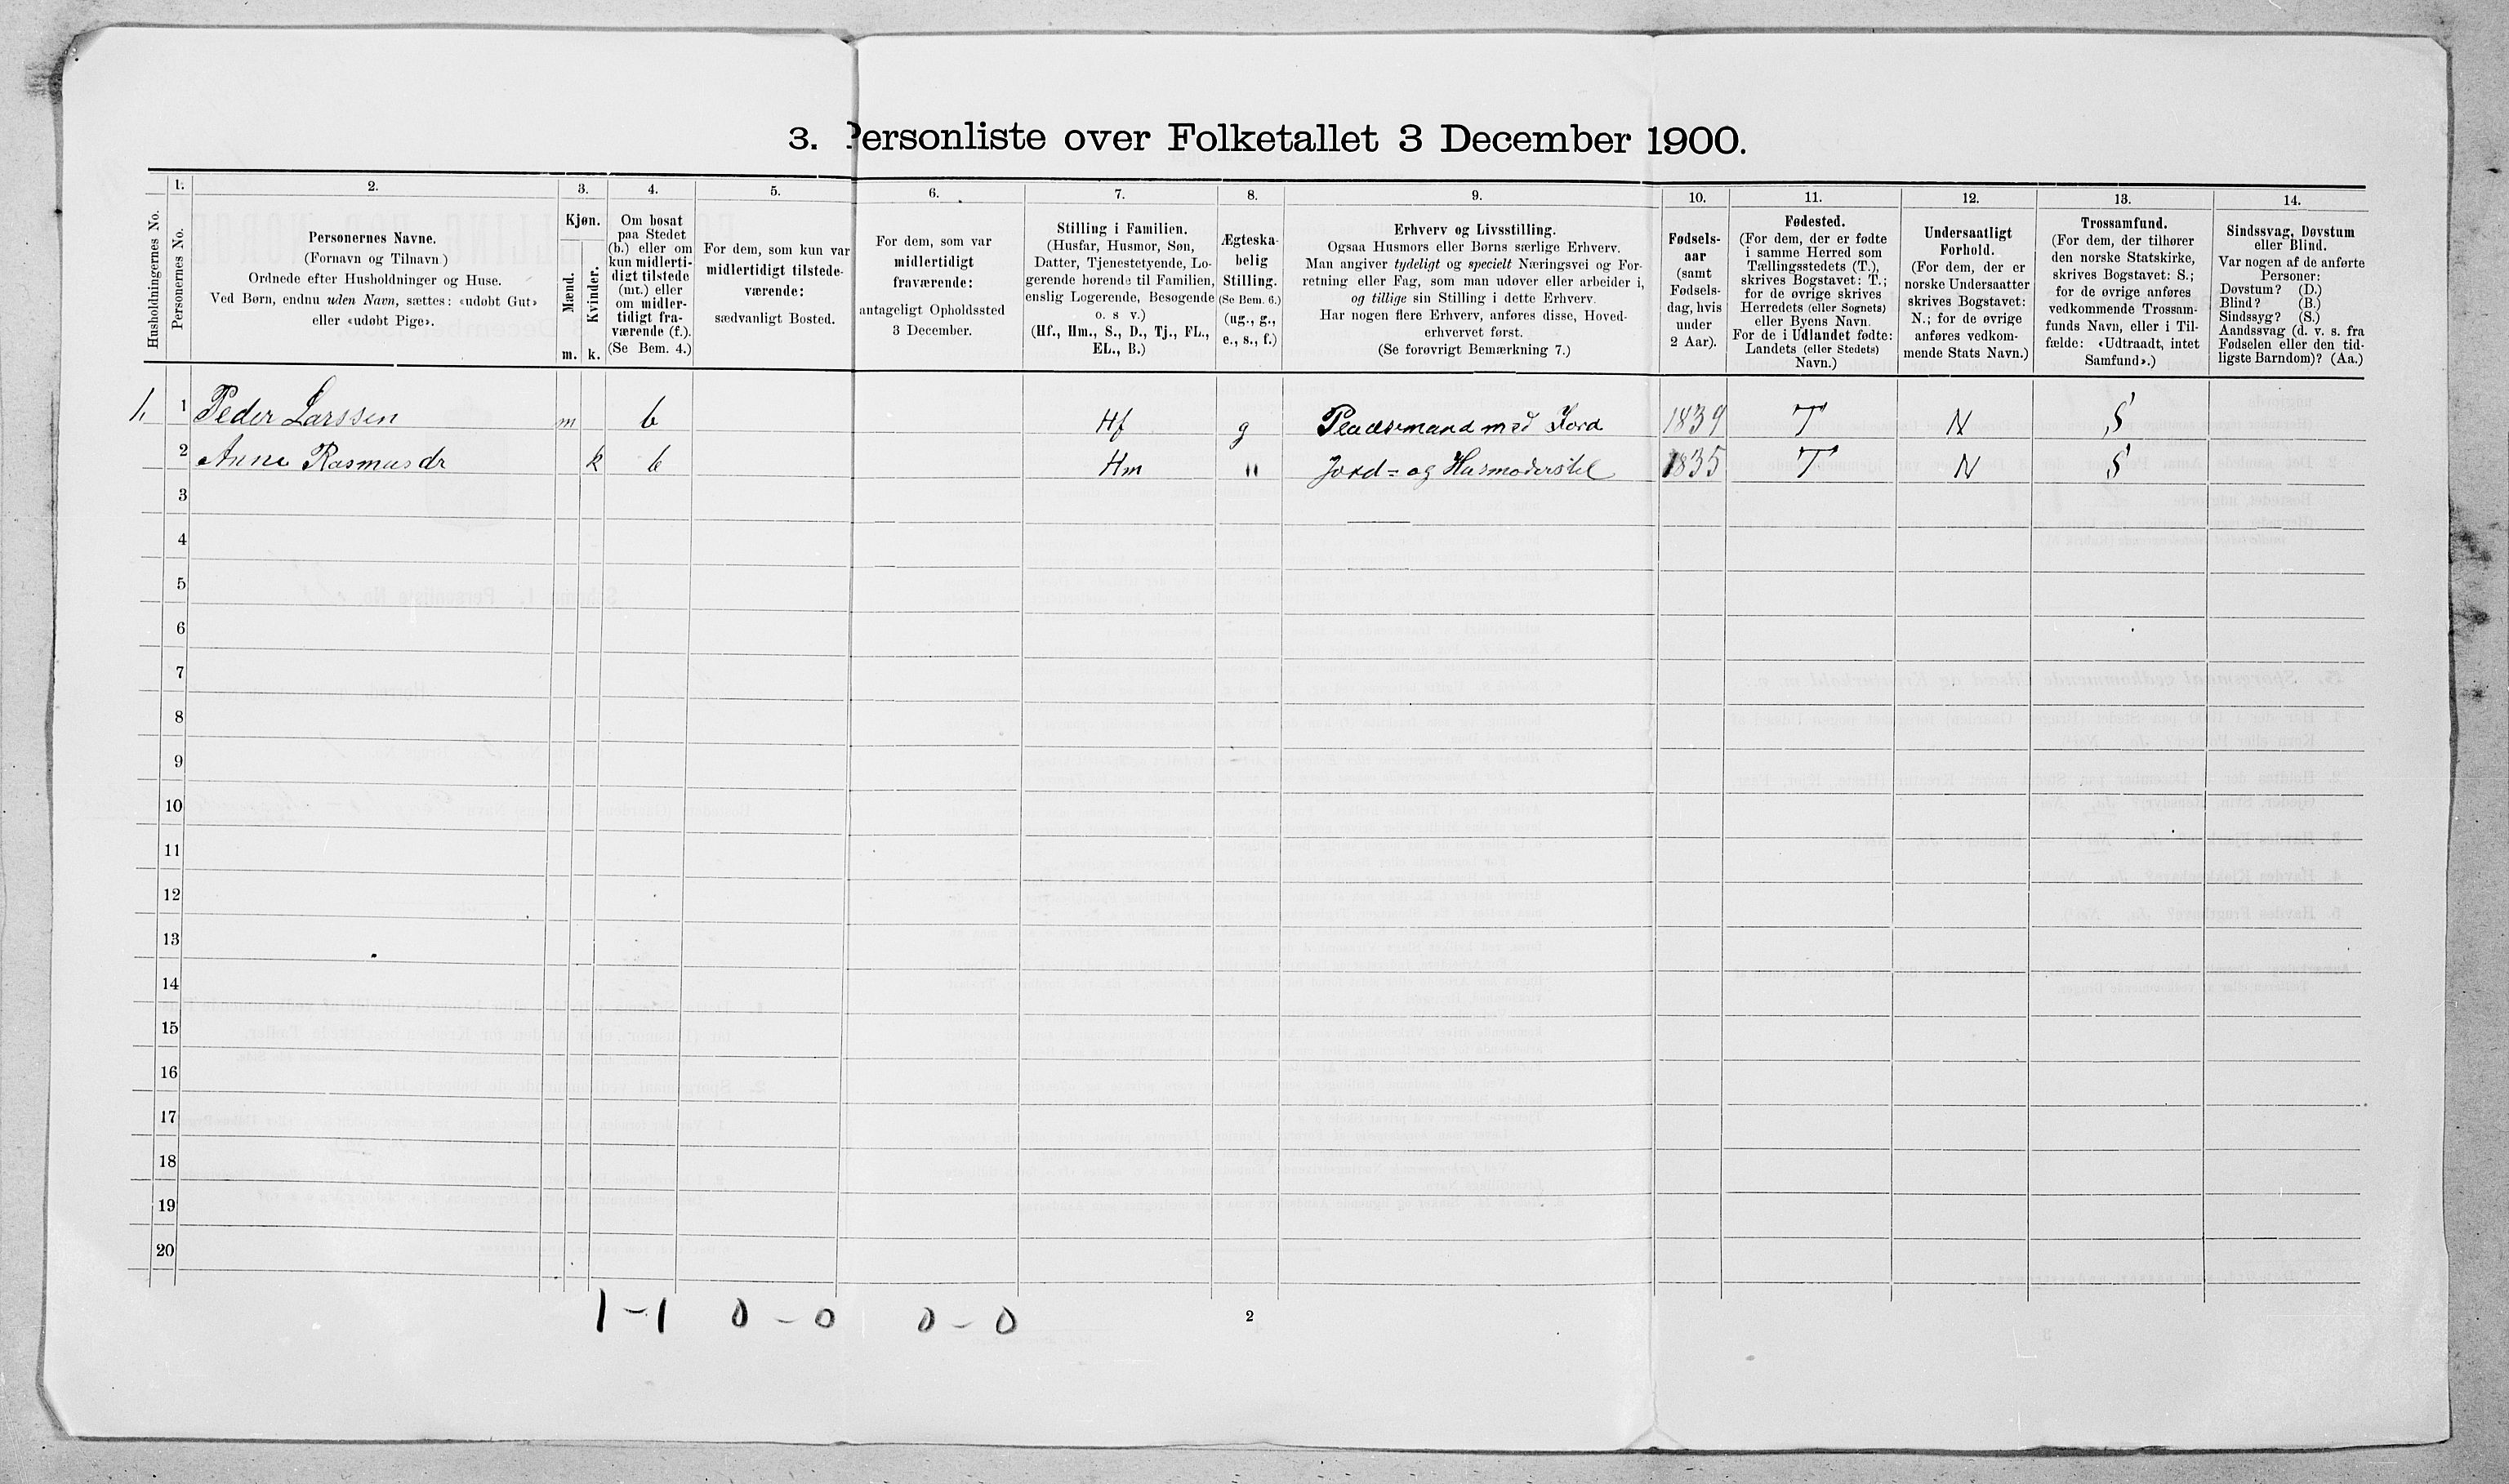 3. Personliste over Folketallet 3 December 1900.
Husholdningernes No.
1.
Personernes No.
2.
Personernes Navne.
(Fornavn og Tilnavn )
Ordnede efter Husholdninger og Huse.
Ved Børn, endnu uden Navn, sættes: «udøbt Gut»
eller «udøbt Pige».
3.
Kjøn.
Mænd.
Kvinder.
m. k.
4.
Om bosat
paa Stedet
(b.) eller om
kun midlerti-
digt tilstede
(mt.) eller
om midler-
tidigt fra-
værende (f.).
(Se Bem. 4.)
5.
For dem, som kun var
midlertidigt tilstede-
værende:
sædvanligt Bosted.
6.
For dem, som var
midlertidigt
fraværende:
antageligt Opholdssted
3 December.
7.
Stilling i Familien.
(Husfar, Husmor, Søn,
Datter, Tjenestetyende, Lo-
gerende hørende til Familien,
enslig Logerende, Besøgende
o. s v.)
(Hf., Hm., S., D., Tj., FL.,
EL., B.)
8.
Ægteska-
belig
Stilling.
(Se Bem. 6.)
(ug., g.,
e., s., f.)
9.
Erhverv og Livsstilling.
Ogsaa Husmors eller Børns særlige Erhverv.
Man angiver tydeligt og specielt Næringsvei og For-
retning eller Fag, som man udøver eller arbeider i,
og tillige sin Stilling i dette Erhverv.
Har nogen flere Erhverv, anføres disse, Hoved-
erhvervet først.
(Se forøvrigt Bemærkning 7.)
10.
Fødsels-
aar
(samt
Fødsels-
dag, hvis
under
2 Aar).
11.
Fødested.
(For dem, der er fødte
i samme Herred som
Tællingsstedets (T.),
skrives Bogstavet: T.;
for de øvrige skrives
Herredets (eller Sognets)
eller Byens Navn.
For de i Udlandet fødte:
Landets (eller Stedets)
Navn.)
12.
Undersaatligt
Forhold.
(For dem, der er
norske Undersaatter
skrives Bogstavet:
N.; for de øvrige
anføres vedkom-
mende Stats Navn.)
13.
Trossamfund.
(For dem, der tilhører
den norske Statskirke,
skrives Bogstavet: S.;
for de øvrige anføres
vedkommende Trossam-
funds Navn, eller i Til-
fælde: «Udtraadt, intet
Samfund».)
14.
Sindssvag, Døvstum
eller Blind.
Var nogen af de anførte
Personer:
Døvstum? (D.)
Blind? (B.)
Sindssyg? (S.)
Aandssvag (d. v. s. fra
Fødselen eller den tid-
ligste Barndom)? (Aa.)
1, 1 Peder Larssen m b Hf g Pladsemand med Jord 1839 T N S
2 Anne Rasmusdr k b Hm " Jord= og Husmoderstel 1835 T N S
3
4
5
6
7
8
9
10
11
12
13
14
15
16
17
18
19
20
1 - 1 0 - 0 0 - 0
2